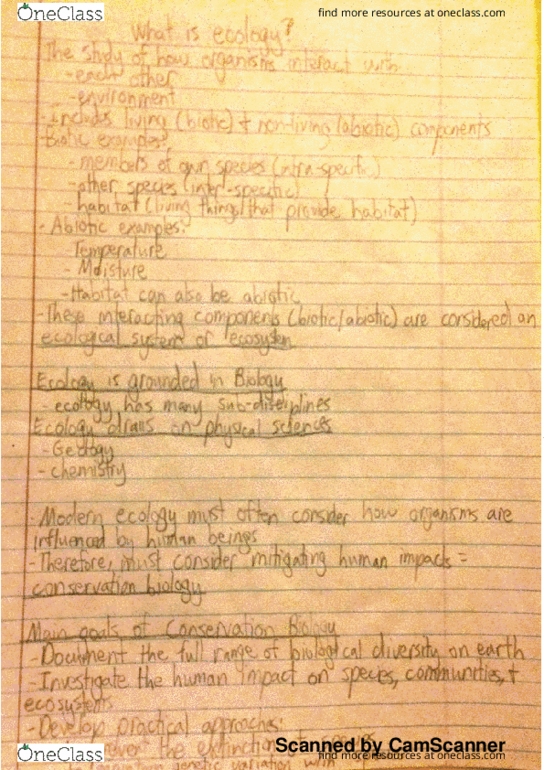 OneClass
find more resources at oneclass.com
What is ecology?
The study of how organisms interact with
- each other
- environment
- Includes living (biotic) + non-living (abiotic) components
Biotic examples:
- members of own species (intra-specific)
- other species (inter-specific)
- habitat (living things that provide habitat)
- Abiotic examples:
Temperature
- Moisture
- Habitat can also be abiotic
- These interacting components (biotic/abiotic) are considered an
ecological system or ecosystem
Ecology is grounded in Biology
- ecology has many sub-disciplines
Ecology draws on physical sciences
- Geology
- chemistry
- Modern ecology must often consider how organisms are
influenced by human beings
- Therefore, must consider mitigating human impacts =
conservation biology
Main goals of Conservation Biology
- Document the full range of biological diversity on earth
- Investigate the human impact on species, communities, +
ecosystems
- Develop practical approaches:
the extinction of
genetic variation within
Scanned by CamScanner
OneClass
find more resources at oneclass.com